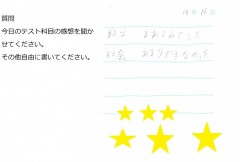 質問
今日のテスト科目の感想を聞か
せてください。
その他自由に書いてください。
10月16日
まあまあでした
社会 あまりできなかった